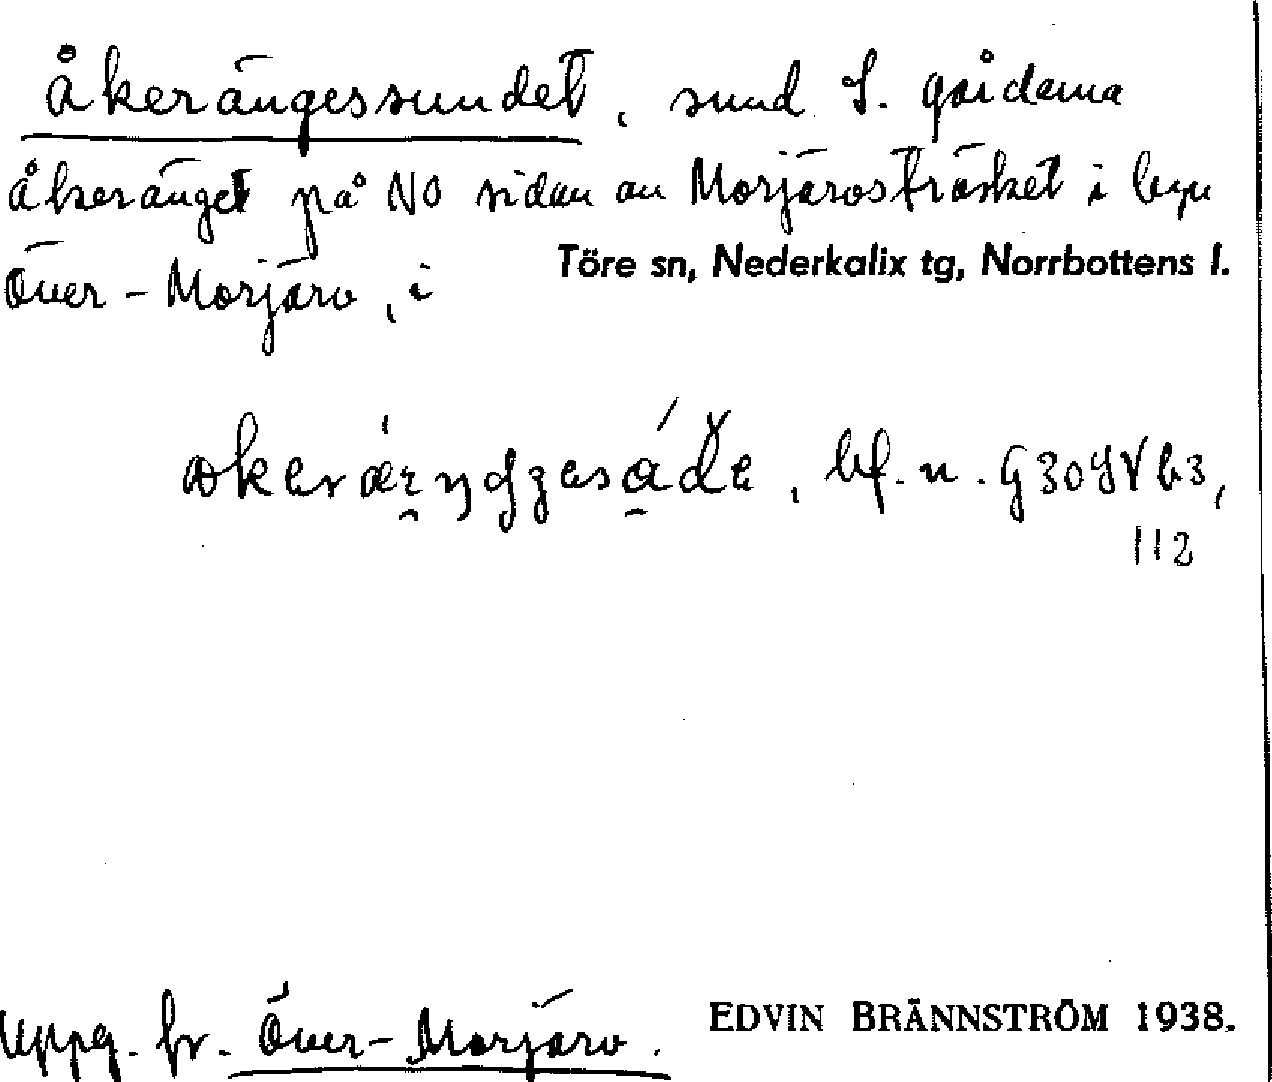 Åkerängessundet, sund S. gårdarna
Åkeränget på NO sidan av Morjärvsträsket i byn
Över-Morjärv, i Töre sn, Nederkalix tg, Norrbottens l.
bf. n. G30YVb3,
112
Uppg. fr. Över-Morjärv. EDVIN BRÄNNSTRÖM 1938.